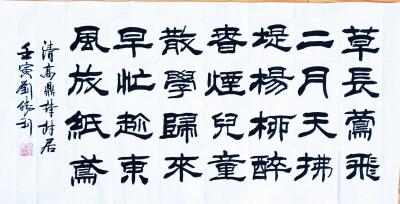 草長鶯飛
二月天拂
堤楊柳醉
春煙兒童
散學歸來
早忙趁東
風放紙鳶
清高鼎村居
壬寅劉